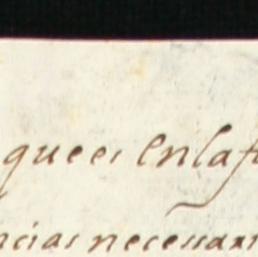 que es en la f
ncias necessari